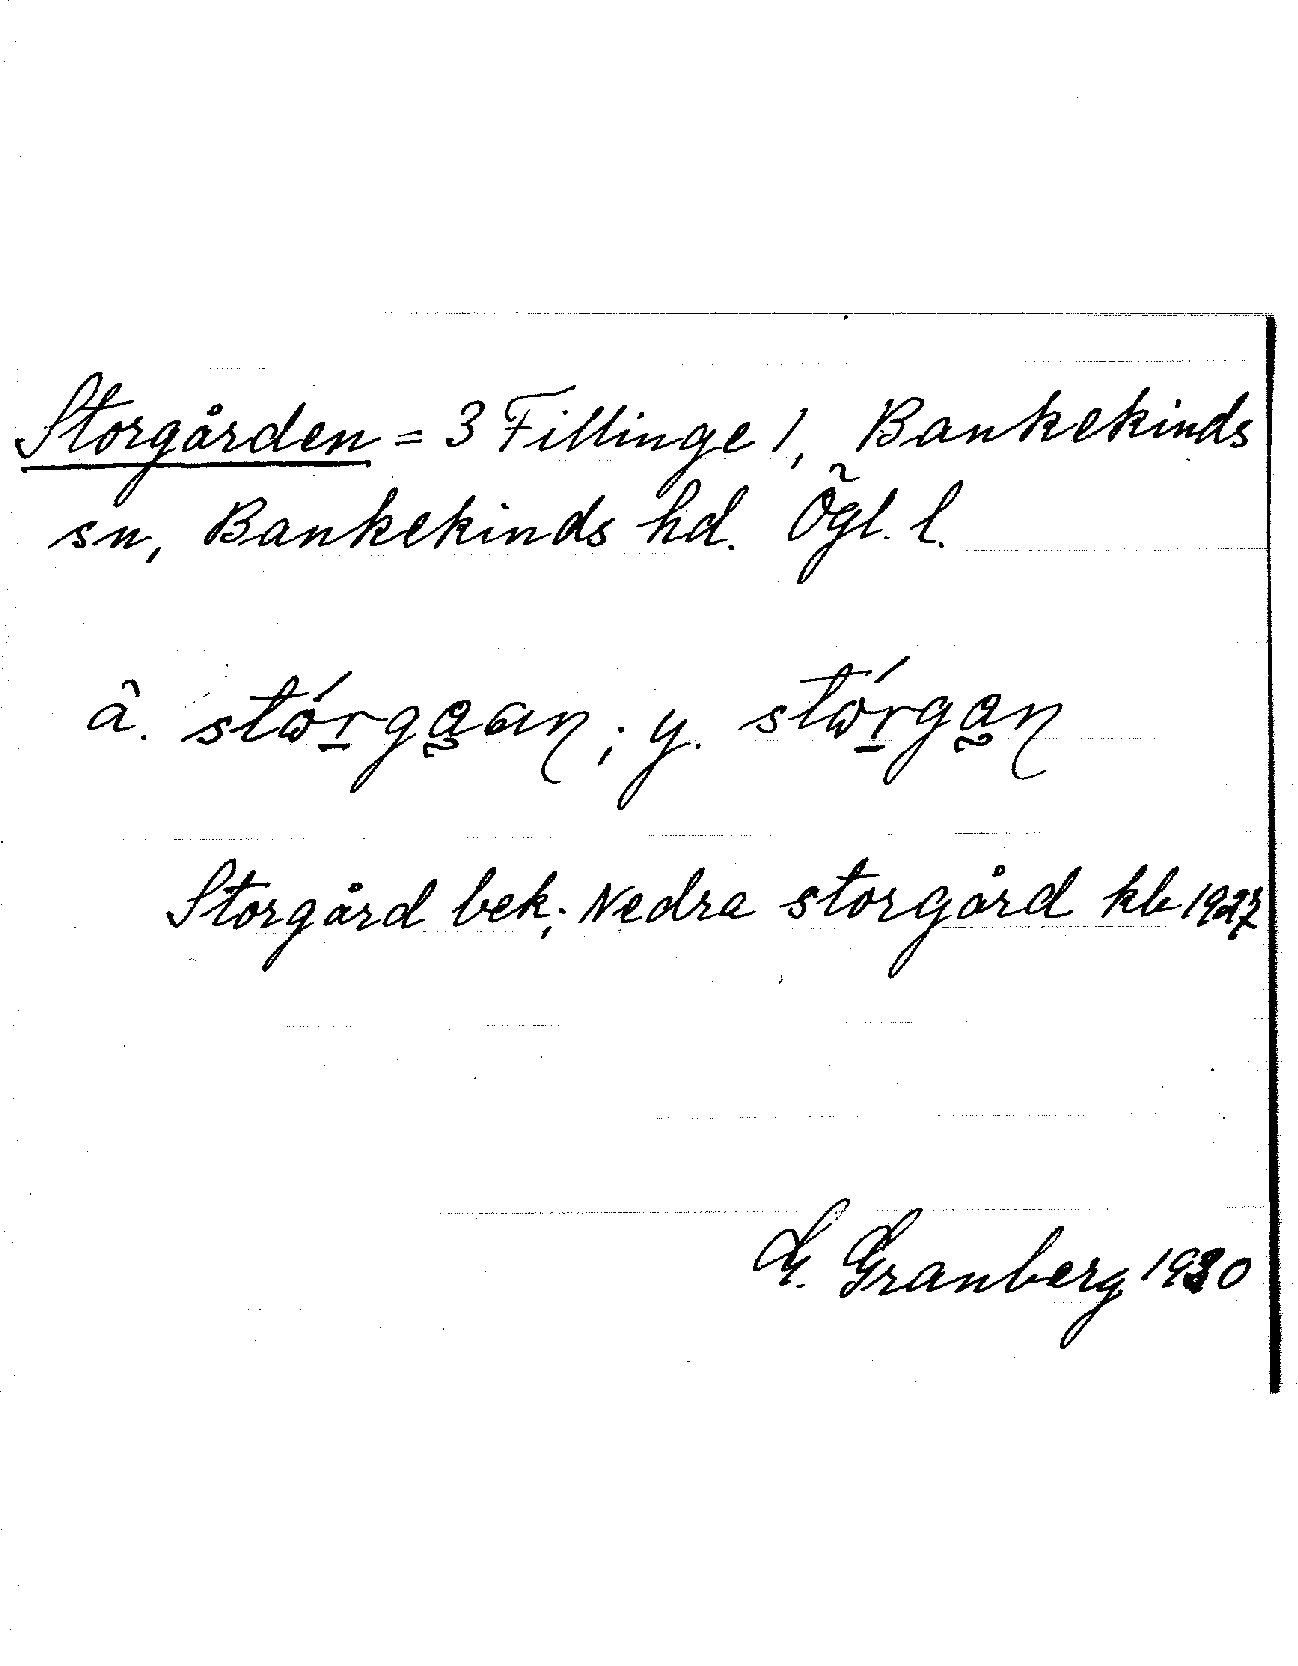 Storgården = 3 Fillinge 1, Bankekinds
sn, Bankekinds hd. Ögl. l.
ä. stórgaan; y. stórgan
Storgård bek; Nedra storgård kb 1927
G. Granberg 1930